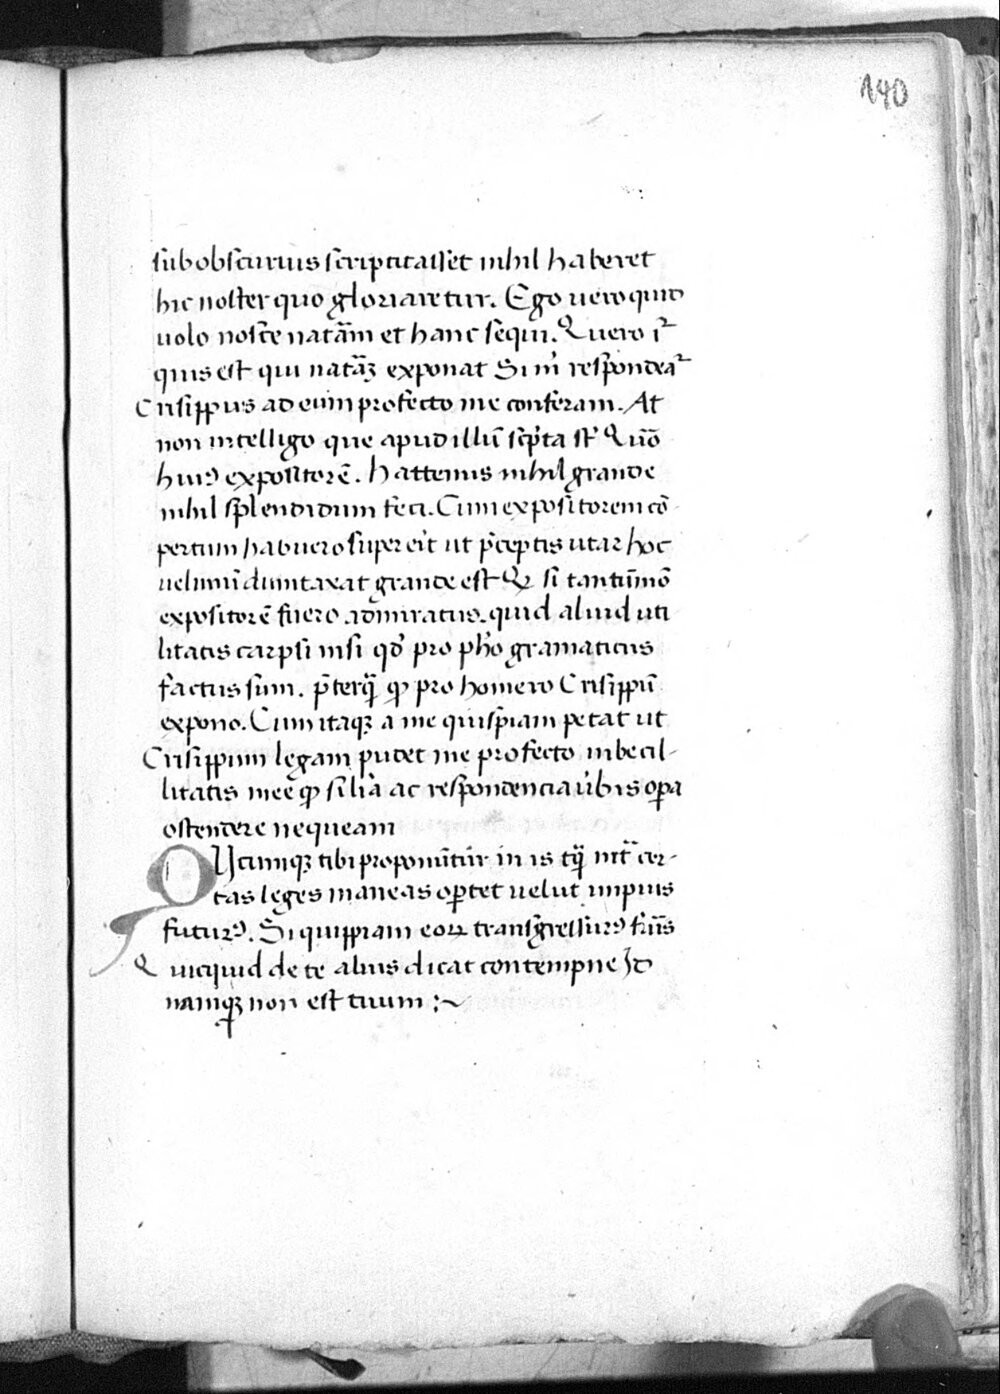 190
subobscurius scriptitasset nihil haberet
hic noster quo gloriaretur. Ego uero quid
uolo nosce natā̄m et hanc sequi. Quero iᷣ
quis est qui natāꝫ exponat Si m̄ respondeaᷣ
Crisippus ad eum profecto me conferam. At
non intelligo que apud illū scp̄ta st̄ Quō
huiꝰ expositorē. hactenus nihil grande
nihil splendidum feci. Cum expositorem cō-
pertum habuero super eit ut p̄ceptis utar hoc
uel unū dumtaxat grande est Qꝫ si tantūmō
expositorē fuero admiratus. quid aliud uti
litatis carpsi nisi qđ pro ph̄o gramaticus
factus sum. p̄terq̄ ꝙ pro homero Crisippū
expono. Cum itaqꝫ a me quispiam petat ut
Crisippum legam pudet me profecto inbecil-
litatis mee ꝙ silia ac respondencia ūbis oꝑa
ostendere nequeam
QUcumqꝫ tibi proponūtur in is tq̄ int̄ cer-
tas leges maneas oꝑtet uelut impius
futurꝰ. Si quippiam eoꝝ transgressurꝰ fūis
Quicquid de te alius dicat contempne Id
namqꝫ non est tuum :~